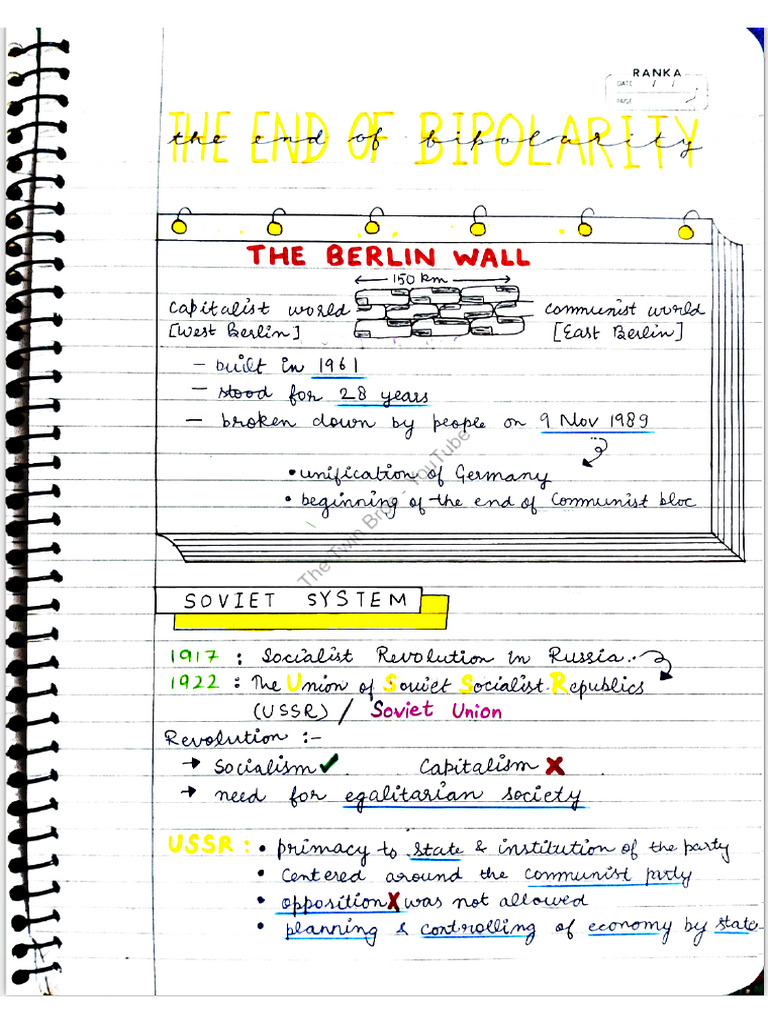 RANKA
DATE / /
PAGE
THE END OF BIPOLARITY
the end of bipolarity
THE BERLIN WALL
150 km
capitalist world
[West Berlin]
communist world
[East Berlin]
- built in 1961
- stood for 28 years
- broken down by people on 9 Nov 1989
• unification of Germany
• beginning of the end of Communist bloc
SOVIET SYSTEM
1917 : Socialist Revolution in Russia..
1922 : The Union of Soviet Socialist Republics
(USSR) / Soviet Union
Revolution :-
→ Socialism ✓ Capitalism X
→ need for egalitarian society
USSR : • primacy to state & institution of the party
• Centered around the communist party
• opposition X was not allowed
• planning & controlling of economy by state
The Twin Bros - YouTube